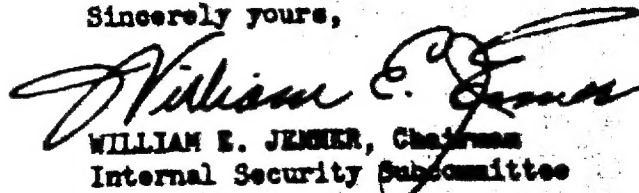 Sincerely yours,
William E. Jenner
WILLIAM E. JENNER, Chairman
Internal Security Subcommittee